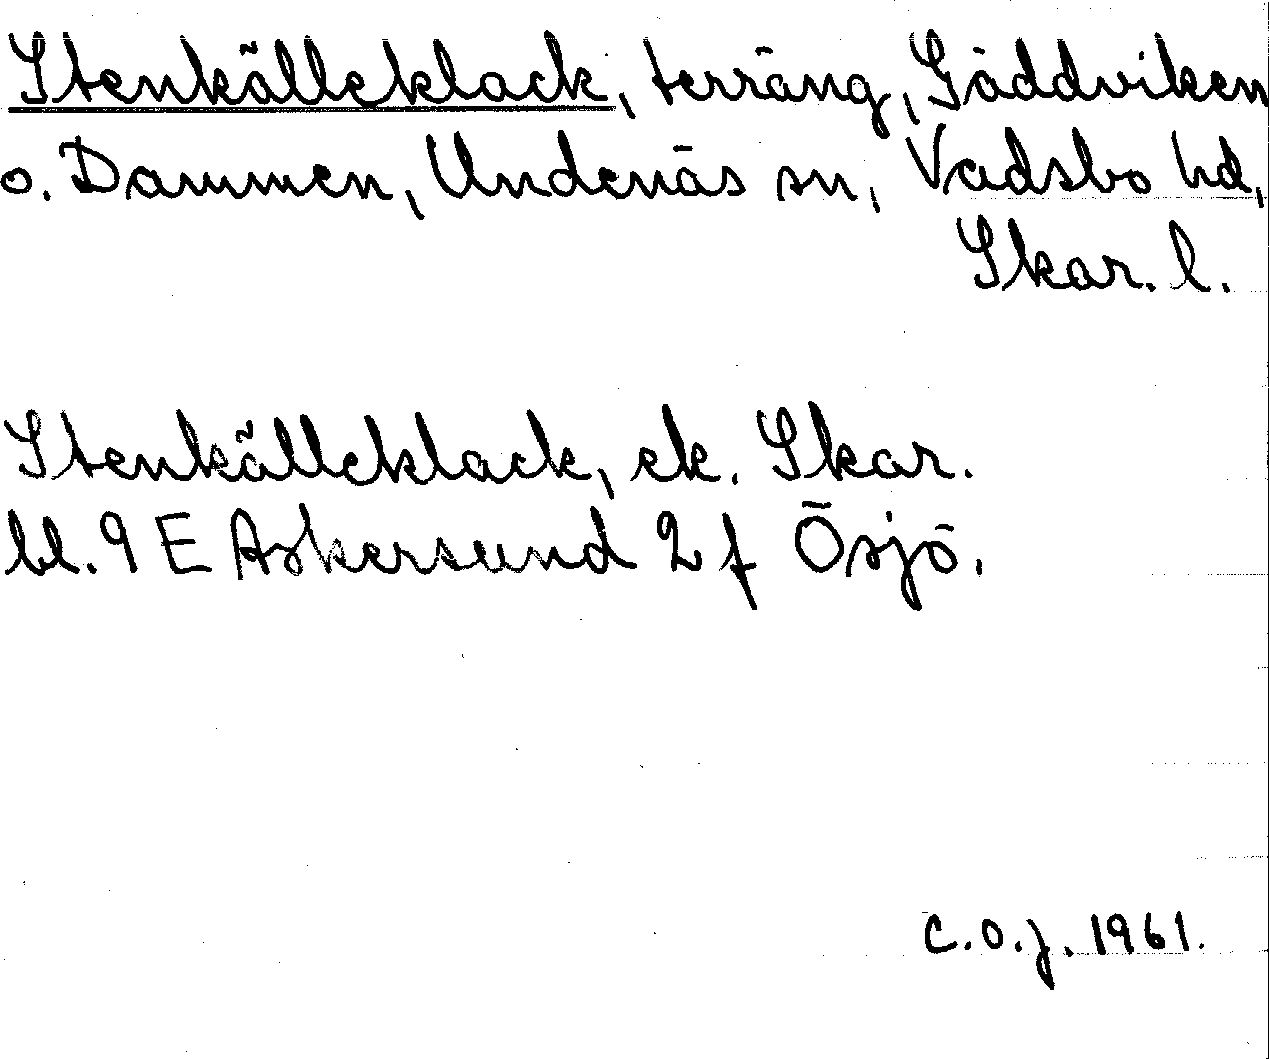 Stenkälleklack, terräng, Gäddviken
o. Dammen, Undenäs sn, Vadsbo hd,
Skar. l.
Stenkälleklack, ek. Skar.
bl. 9 E Askersund 2 f Ösjö.
C.O.J. 1961.